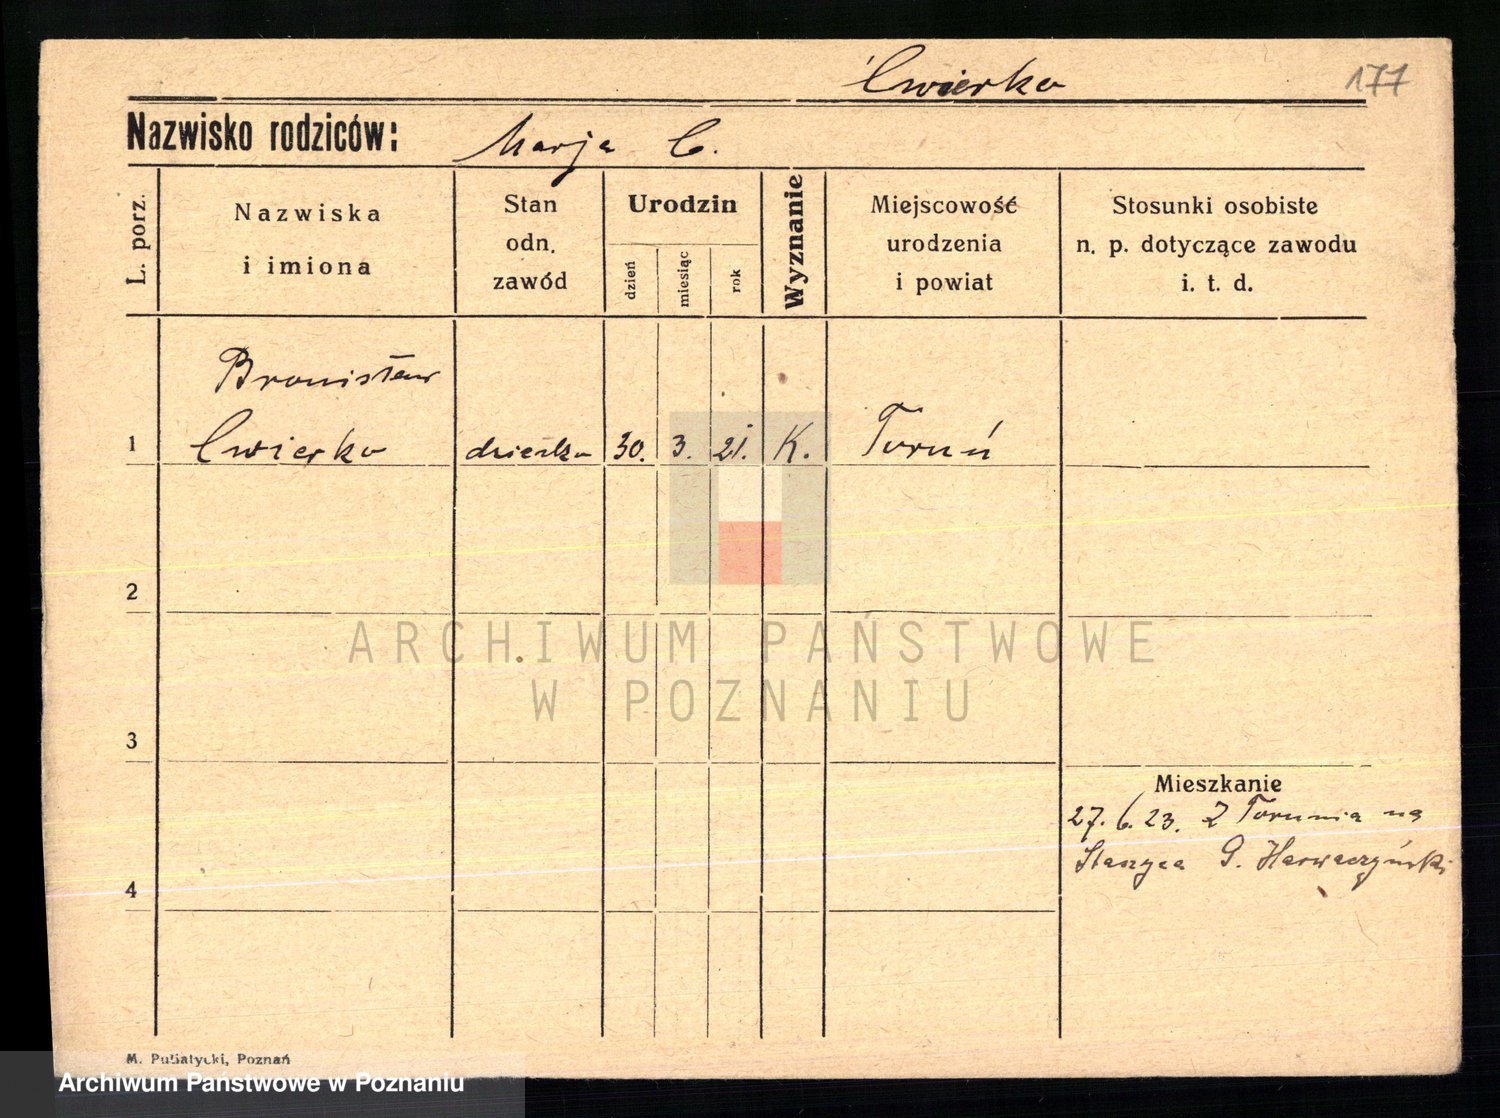 Ćwierko
177
Nazwisko rodziców: Marja C.
L. porz.
Nazwiska
i imiona
Stan
odn.
zawód
Urodzin
dzień
miesiąc
rok
Wyznanie
Miejscowość
urodzenia
i powiat
Stosunki osobiste
n. p. dotyczące zawodu
i. t. d.
Bronisław
1 Cwierko dziecko 30. 3. 21. K. Toruń
2
3
4
Mieszkanie
27. 6. 23. Z Torunia na
Staszyca G.
ARCHIWUM PAŃSTWOWE
W POZNANIU
M. Pusiatycki, Poznań
Archiwum Państwowe w Poznaniu